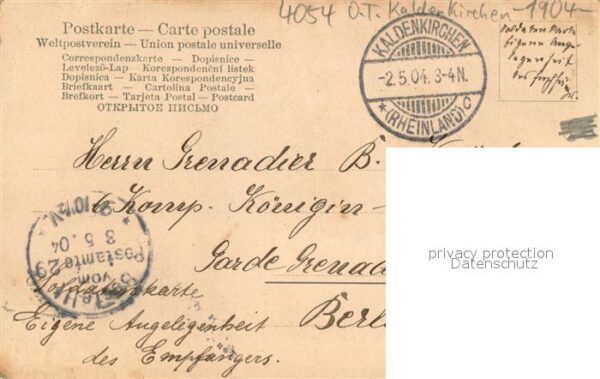 4054 O.T. Kaldenkirchen - 1904 -
Postkarte — Carte postale
Weltpostverein — Union postale universelle
Correspondenzkarte - Dopisnice -
Levelező-Lap - Korespondenční listek
Dopisnica - Karta Korespondencyjna
Briefkaart - Cartolina Postale -
Brefkort - Tarjeta Postal - Postcard
ОТКРЫТОЕ ПИСЬМО
KALDENKIRCHEN
-2.5.04. 3-4N.
*(RHEINLAND) C
Soldatenkarte
Eigene Ange-
legenheit
des
Herrn Grenadier B.
Komp. Königin
Garde Grenad
Berl
Bestellt
vom
Postamte 29
3.5.04
Soldatenkarte
Eigene Angelegenheit
des Empfängers.
privacy protection
Datenschutz